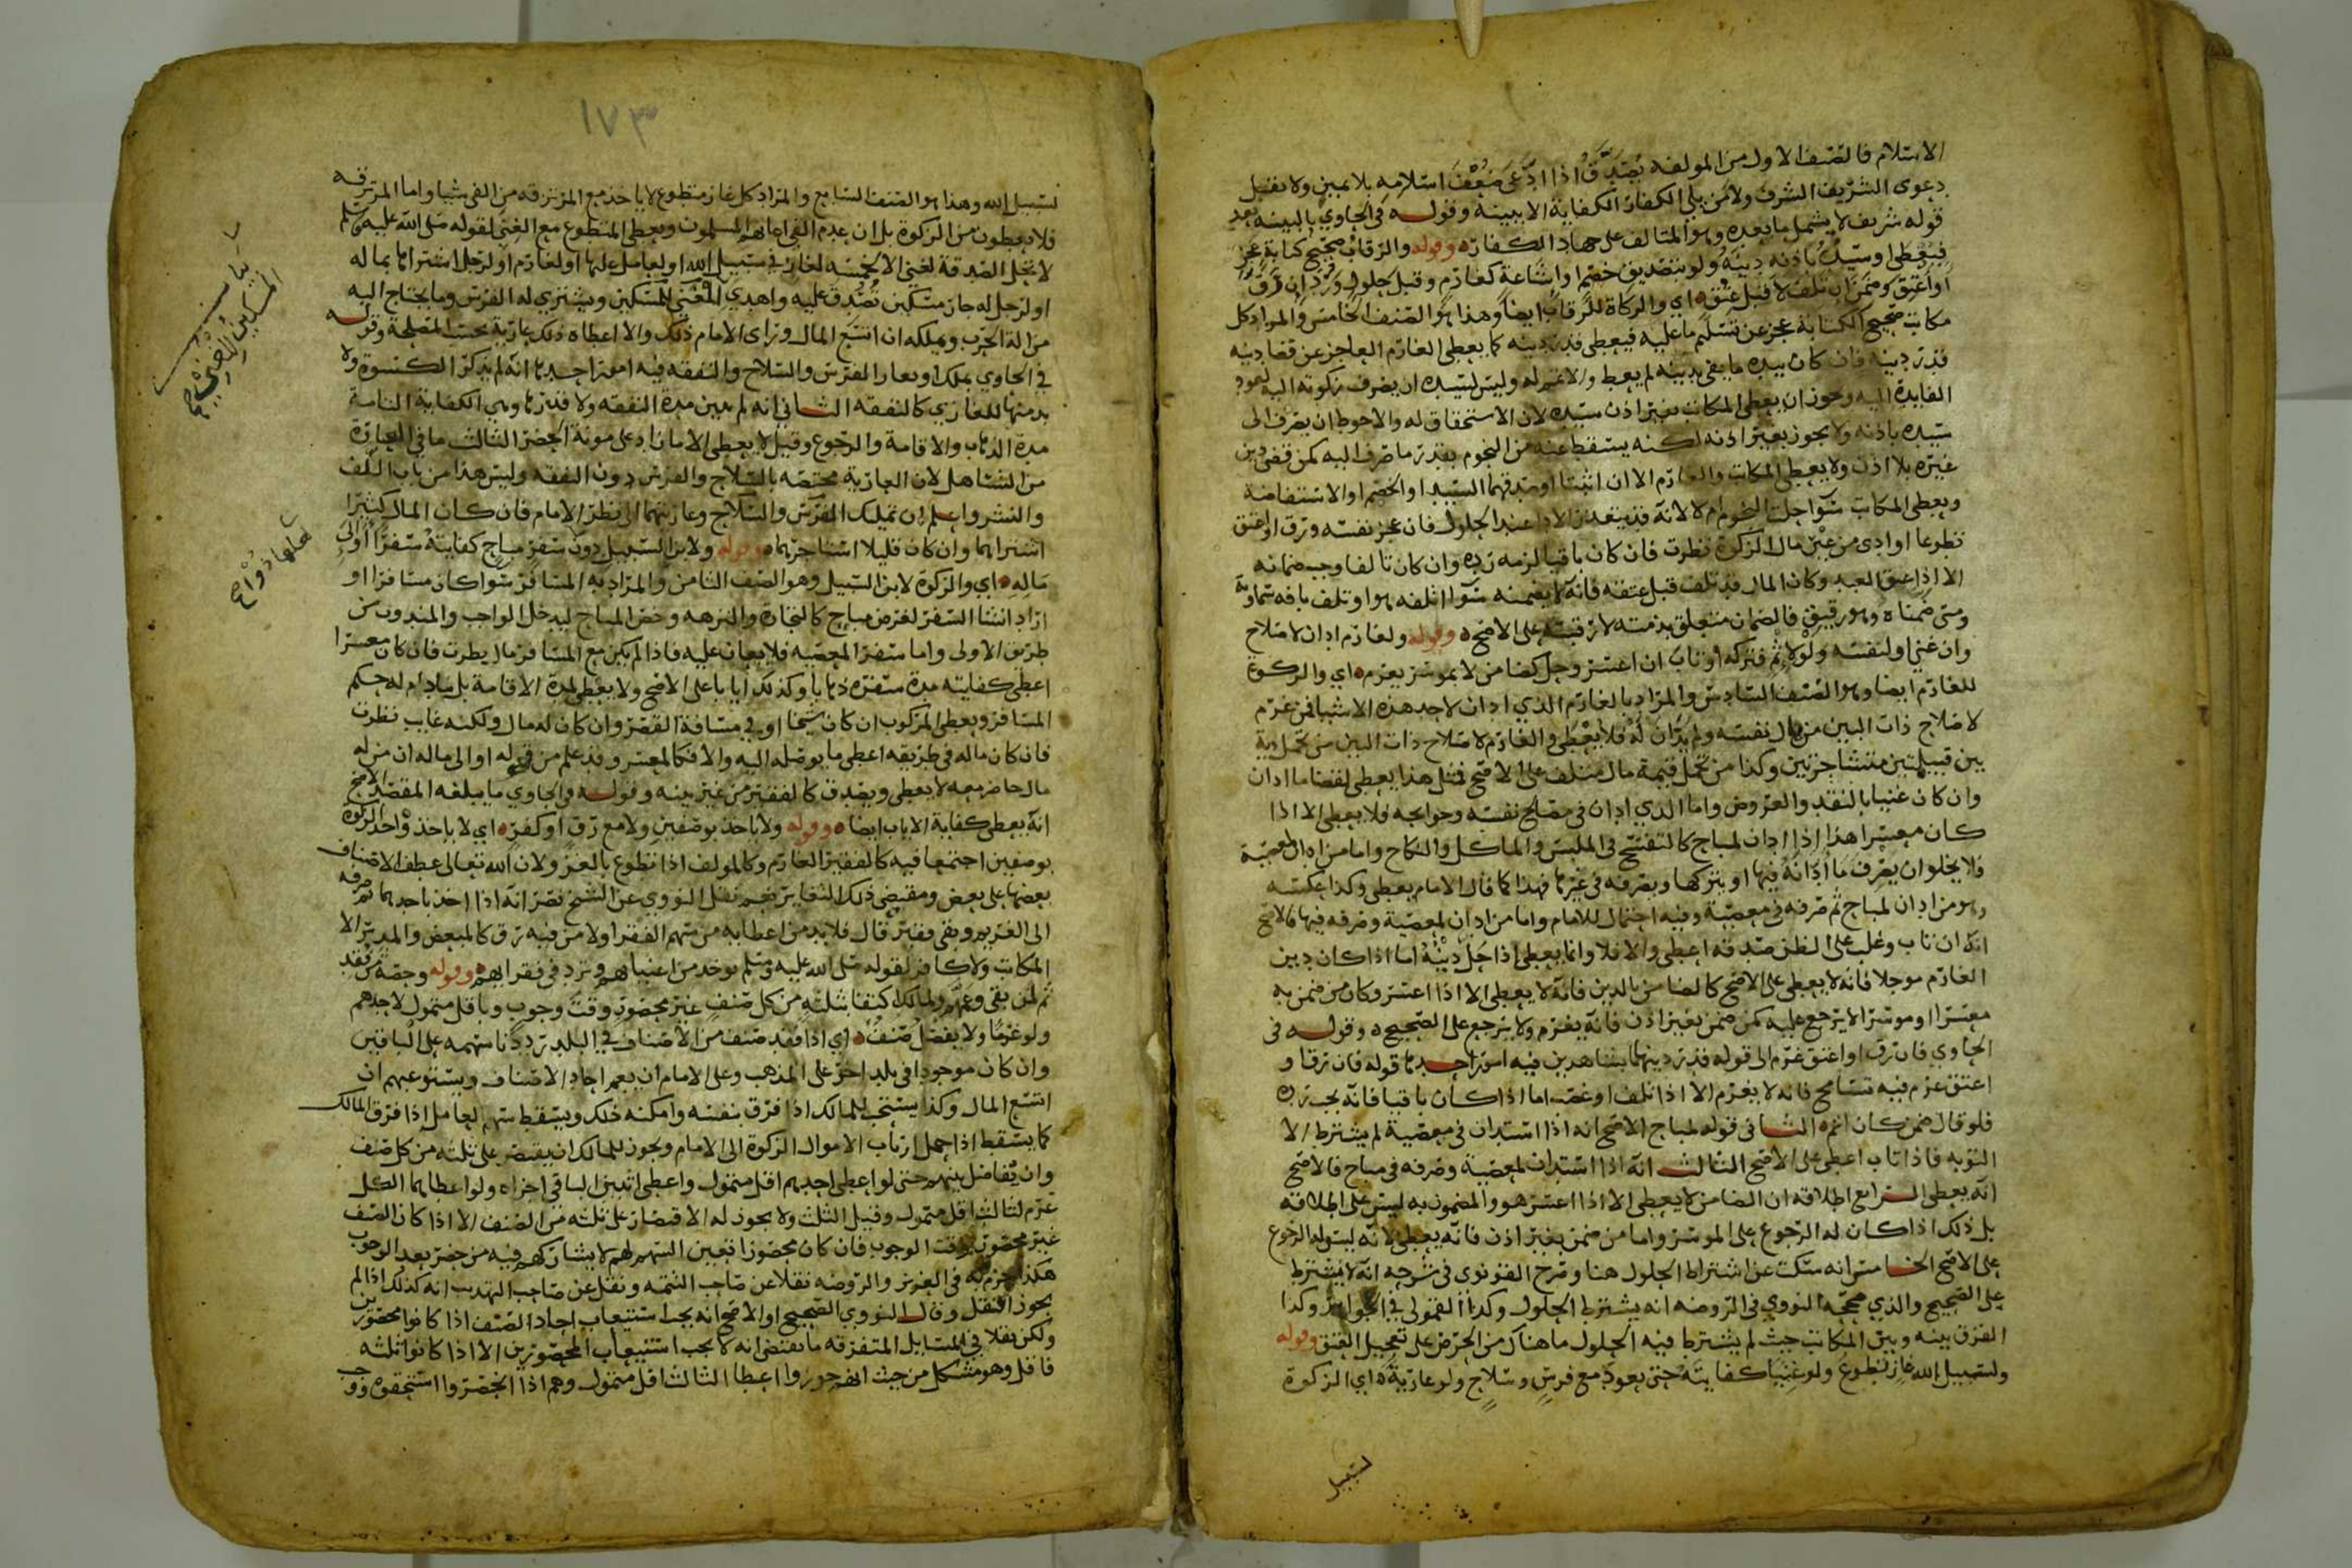 الاسلام فالصنف الاول من المولفه يُصَدَّقُ اذا ادّعى ضَعْفَ اسلامه بلا يمين ولا يقبل
دعوى الشريف الشرف ولا من يلي الكفار الكفاية الا ببينة وقوله في الحاوي بالبينة بعد
قوله شريف لا يشمل ما بعده وهو المتالف على جهاد الكفاره وقوله والرقاب صحيح كتابة عجز
فيعطى او سيده باذنه دينه ولو بتصديق خصم واشاعة كغارم وقبل حلول ورد ان رق
او اعتق وضمن ان تلف لا قبل عتق اي والزكاة للرقاب ايضا وهذا هو الصنف الخامس والمراد كل
مكاتب صحيح الكتابة عجز عن تسليم ما عليه فيعطى قدر دينه كما يعطى الغارم العاجز عن قضا دينه
قدر دينه فان كان بيده ما يفي بدينه لم يعط والا غير له وليس لسيده ان يصرف زكوته اليه لعود
الفايدة اليه وجوز ان يعطى المكاتب بغير اذن سيده لان الاستحقاق له والاحوط ان يصرف الى
سيده باذنه ولا يجوز بغير اذنه لكنه يسقط عنه من النجوم بقدر ما صرف اليه كمن قضى دين
غيره بلا اذن ولا يعطى المكاتب والغارم الا ان اثبتا او صدقهما السيد او الخصم او الاستفاضة
ويعطى المكاتب سوا حلت النجوم ام لا لانه قد يتعذر الادا عند الحلول فان عجز نفسه ورق او اعتق
تطوعا او ادى من غير مال الزكوة نظرت فان كان باقيا لزمه رده وان كان تالفا وجب ضمانه
الا اذا عتق العبد وكان المال قد تلف قبل عتقه فانه لا يضمنه سوا اتلفه هو او تلف بافه سماوية
ومتى ضمناه وهو رقيق فالضمان متعلق بذمته لا رقبته على الاصح وقوله ولغارم ادان لاصلاح
وان غني او لنفسه ولو لاثم فتركه او تاب ان اعسر وحل كضامن لا بموسر يغرم اي والزكوة
للغارم ايضا وهو الصنف السادس والمراد بالغارم الذي ادان لاحد هذه الاشيا فمن غرم
لاصلاح ذات البين من مال نفسه ولم يدان له فلا يعطى والغارم لاصلاح ذات البين من تحمل دية
بين قبيلتين متشاجرتين وكذا من تحمل قيمة مال متلف على الاصح فمثل هذا يعطى لقضا ما ادان
وان كان غنيا بالنقد والعروض واما الذي ادان في مصلح نفسه وحوايجه فلا يعطى الا اذا
كان معسرا هذا اذا ادان لمباح كالتفسح في الملبس والماكل والنكاح واما من ادان لمعصية
فلا يخلو ان يصرف ما ادانه فيها او يتركها ويصرفه في غيرها فهذا كما قال الامام يعطى وكذا عكسه
وهو من ادان لمباح ثم صرفه في معصية وفيه احتمال للامام واما من ادان لمعصية وصرفه فيها فالاصح
انه ان تاب وغلب على الظن صدقه اعطى والا فلا وانما يعطى اذا حَلَّ دَيْنُهُ اما اذا كان دين
الغارم موجلا فانه لا يعطى على الاصح كالضامن بالدين فانه لا يعطى الا اذا اعسر وكان من ضمن به
معسرا او موسرا لا يرجع عليه كمن ضمن بغير اذن فانه يغرم ولا يرجع على الصحيح وقوله في
الحاوي فان رق او اعتق غرم الى قوله قدر دينهما بشاهدين فيه امور احدها قوله فان رق او
اعتق غرم فيه تسامح فانه لا يغرم الا اذا تلف او غصب اما اذا كان باقيا فانه يجب رده
فلو قال ضمن كان اتم الثاني قوله لمباح الاصح انه اذا استدان في معصية لم يشترط الا
التوبه فاذا تاب اعطى على الاصح الثالث انه اذا استدان لمعصية وصرفه في مباح فالاصح
انه يعطى الرابع اطلاقه ان الضامن لا يعطى الا اذا اعسر هو والمضمون به ليس على اطلاقه
بل ذلك اذا كان له الرجوع على الموسر واما من ضمن بغير اذن فانه يعطى لانه ليس له الرجوع
على الاصح الخامس انه سكت عن اشتراط الحلول هنا وصرح القونوي في شرحه انه لا يشترط
على الصحيح والذي صححه النووي في الروضه انه يشترط الحلول وكذا القمولي في الجواهر وكذا
الفرق بينه وبين المكاتب حيث لم يشترط فيه الحلول ما هناك من الحرص على تعجيل العتق وقوله
ولسبيل الله غاز تطوع ولو غنيا كفايته حتى يعود مع فرس وسلاح ولو عارية اي الزكوة
لسبيل
١٧٣
لسبيل الله وهذا هو الصنف السابع والمراد كل غاز متطوع لا ياخذ مع المرتزقه من الفي شيا واما المرتزقه
فلا يعطون من الزكوة بل ان عدم الفي اعانهم المسلمون ويعطى المتطوع مع الغنى لقوله صلى الله عليه وسلم
لا تحل الصدقة لغني الا لخمسه لغاز في سبيل الله او لعامل عليها او لغارم او لرجل اشتراها بماله
او لرجل له جار مسكين تُصُدِّق عليه واهدى المسكين ويشتري له الفرس وما يحتاج اليه
من الة الحرب ويملكه ان اتسع المال وراى الامام ذلك والا اعطاه ذلك عارية بحسب المصلحة وقوله
في الحاوي يملك او يعار الفرس والسلاح والنفقه فيه امور احدها انه لم يذكر الكسوة ولا
بد منها للغازي كالنفقه الثاني انه لم يبين مدة النفقه ولا قدرها وهي الكفاية التامة
مدة الذهاب والاقامة والرجوع وقيل لا يعطى الا ما زاد على مونة الحضر الثالث ما في العبارة
من التساهل لان العارية مختصه بالسلاح والفرس دون النفقه وليس هذا من باب اللف
والنشر واعلم ان تمليك الفرس والسلاح وعاريتهما الى نظر الامام فان كان المال كثيرا
اشتراهما وان كان قليلا استاجرهما وقوله ولابن السبيل دون سفر مباح كفايته سفرا او الى
مالِهِ اي والزكوة لابن السبيل وهو الصنف الثامن والمراد به المسافر سوا كان مسافرا او
اراد انشا السفر لغرض مباح كالتجارة والنزهه وخص المباح ليدخل الواجب والمندوب من
طريق الاولى واما سفر المعصيه فلا يعان عليه فاذا لم يكن مع المسافر مال نظرت فان كان معسرا
اعطي كفايته مدة سفره ذهابا وكذلك ايابا على الاصح ولا يعطى لمدة الاقامة بل ما دام له حكم
المسافر ويعطى المركوب ان كان شيخا او في مسافة القصر وان كان له مال ولكنه غايب نظرت
فان كان ماله في طريقه اعطى ما يوصله اليه والا فكالمعسر وقد علم من قوله او الى ماله ان من له
مال حاضر معه لا يعطى ويصدق كالفقير من غير بينه وقوله في الحاوي ما يبلغه المقصد الاصح
انه يعطى كفاية الاياب ايضا وقوله ولا ياخذ بوصفين ولا مع رق او كفر اي لا ياخذ واحد الزكوة
بوصفين اجتمعا فيه كالفقير الغارم وكالمولف اذا تطوع بالغزو لان الله تعالى عطف الاصناف
بعضها على بعض ومقتضى ذلك التغاير نعم نقل النووي عن الشيخ نصر انه اذا اخذ باحدهما ثم صرفه
الى الغريم وبقى فقير قال فلا بد من اعطايه من سهم الفقرا ولا من فيه رق كالمبعض والمدبر الا
المكاتب ولا كافر لقوله صلى الله عليه وسلم توخذ من اغنيائهم وترد في فقرائهم وقوله وحصة من فقد
ثم لمن بقى وعمم ولمالك اكتفا بثلثه من كل صنف غير محصور وقت وجوب وباقل متمول لاحدهم
ولو غرما ولا يفضل صنف اي اذا فقد صنف من الاصناف في البلد رددنا سهمه على الباقين
وان كان موجودا في بلد اخر على المذهب وعلى الامام ان يعم احاد الاصناف ويستوعبهم ان
اتسع المال وكذا يستحب للمالك اذا فرق بنفسه وامكنه ذلك ويسقط سهم العامل اذا فرق المالك
كما يسقط اذا حمل ارباب الاموال الزكوة الى الامام ويجوز للمالك ان يقتصر على ثلثه من كل صنف
وان يفاضل بينهم حتى لو اعطى احدهم اقل متمول واعطى اثنين الباقي اجزاه ولو اعطاهما الكل
غرم لثالث اقل متمول وقيل الثلث ولا يجوز له الاقتصار على ثلثه من الصنف الا اذا كان الصنف
غير محصور وقت الوجوب فان كان محصورا تعين السهم لهم لا يشاركهم فيه من حضر بعد الوجوب
هكذا جزم به في العزيز والروضه نقلا عن صاحب التتمه ونقل عن صاحب التهذيب انه كذلك اذا لم
يجوز النقل وقال النووي الصحيح او الاصح انه يجب استيعاب احاد الصنف اذا كانوا محصورين
ولكن نقلا في المسايل المتفرقه ما يقتضى انه لا يجب استيعاب المحصورين الا اذا كانوا ثلثه
فاقل وهو مشكل من حيث انهم جوزوا اعطا الثالث اقل متمول وهم اذا انحصروا استحقوه ووجب